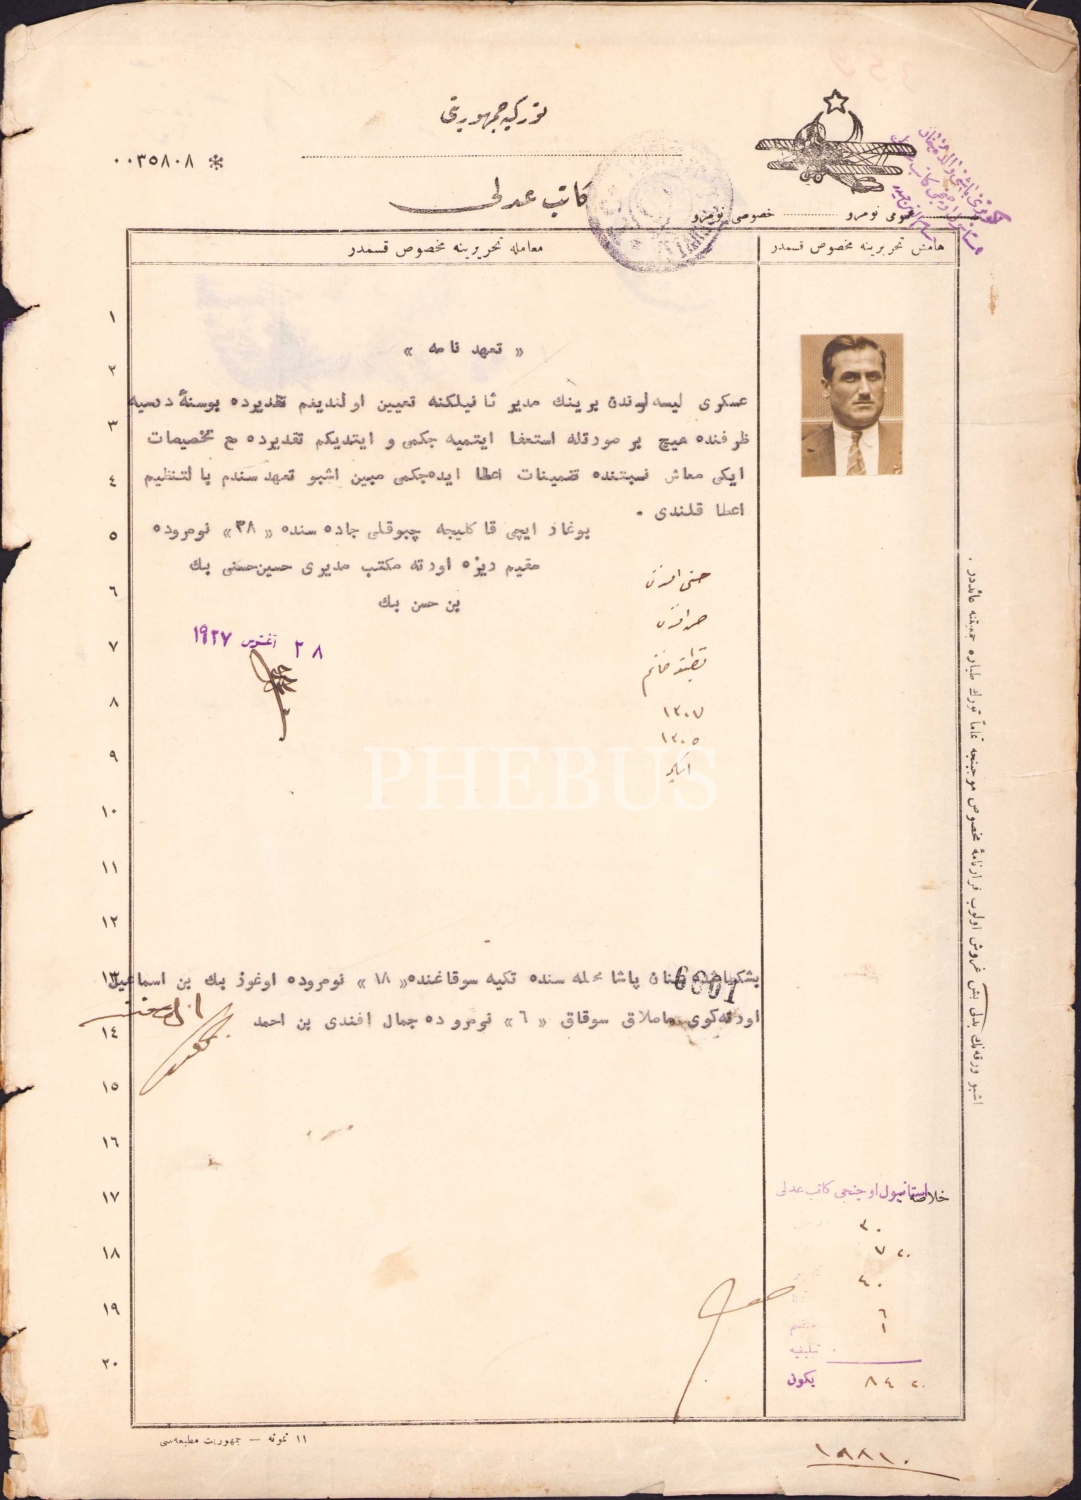 توركيه جمهوريتى
٠٠٣٥٨٠٨ *
كاتب عدلى
عمومى نومرو
خصوصى نومرو
معامله تحريرينه مخصوص قسمدر
هامش تحريرينه مخصوص قسمدر
« تعهد نامه »
عسكرى ليسه لرندن برينك مدير ثانيلكنه تعيين اولنديغم تقديرده بوسنهٔ درسيه
ظرفنده هيچ بر صورتله استعفا ايتميه جكمى و ايتديكم تقديرده مع تخصيصات
ايكى معاش نسبتنده تضمينات اعطا ايده جكمى مبين اشبو تعهد سندم بالتنظيم
اعطا قلندى .
بوغاز ايچى قاكليجه چبوقلى جاده سنده « ٣٨ » نومروده
مقيم ريزه اورته مكتب مديرى حسين حسنى بك
بن حسن بك
٢٨ اغستوس ١٩٢٧
١٣٠٧
١٣٠٥
PHEBUS
بشكطاشده سنان پاشا محله سنده تكيه سوقاغنده « ١٨ » نومروده اوغوز بك بن اسماعيل
اورته كوى ماملاق سوقاق « ٦ » نومروده جمال افندى بن احمد
١
٢
٣
٤
٥
٦
٧
٨
٩
١٠
١١
١٢
١٣
١٤
١٥
١٦
١٧
١٨
١٩
٢٠
اشبو ورقه نك بدلى بش غروش اولوب قرارنامهٔ مخصوص موجبنجه تماماً تورك طياره جمعيتنه عائددر .
خلاصه
استانبول اوچنجى كاتب عدلى
٣٠
٧ ٢٠
٤٠
٦
١
يكون ٨٤ ٢٠
١١ نمونه — جمهوريت مطبعه سى
١٩٨١٠